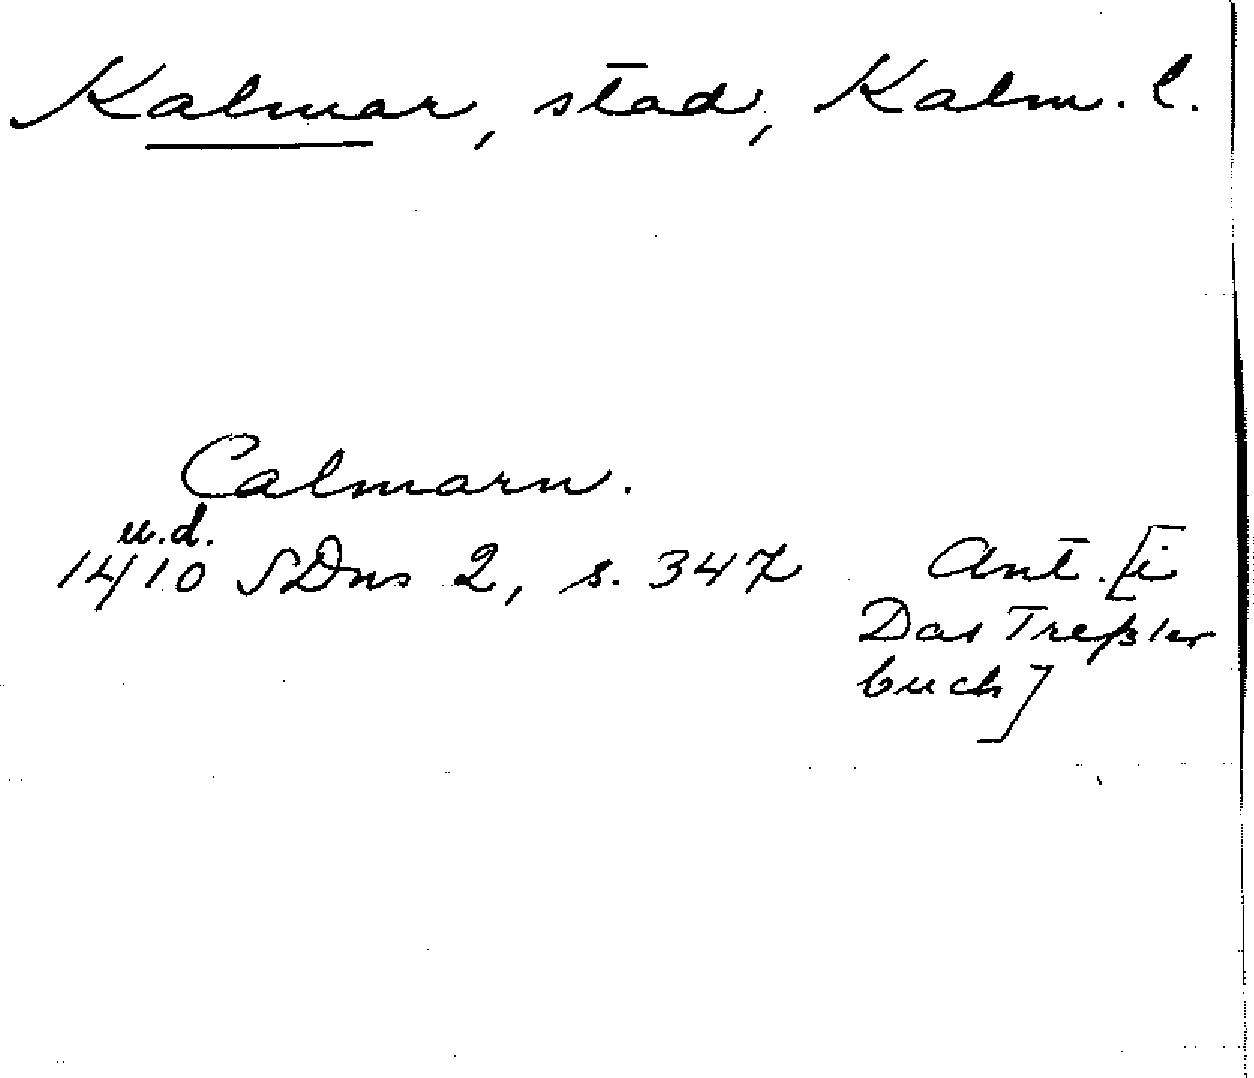 Kalmar, stad, Kalm. l.
Calmarn.
u.d.
1410 SDns 2, s. 347 Ant. [i
Das Treßler
buch]